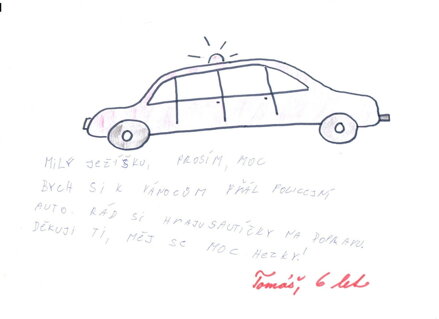 MILÝ JEŽÍŠKU, PROSÍM, MOC
BYCH SI K VÁNOCŮM PŘÁL POLICEJNÍ
AUTO. RÁD SI HRAJU S AUTÍČKY NA DOPRAVU.
DĚKUJI TI, MĚJ SE MOC HEZKY!
Tomáš, 6 let